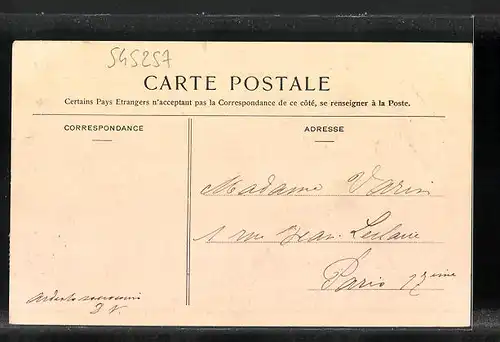 545257
CARTE POSTALE
Certains Pays Etrangers n'acceptant pas la Correspondance de ce côté, se renseigner à la Poste.
CORRESPONDANCE
ADRESSE
Madame Varin
1 rue Jean Leclaire
Paris 17eme
souvenir
D. V.